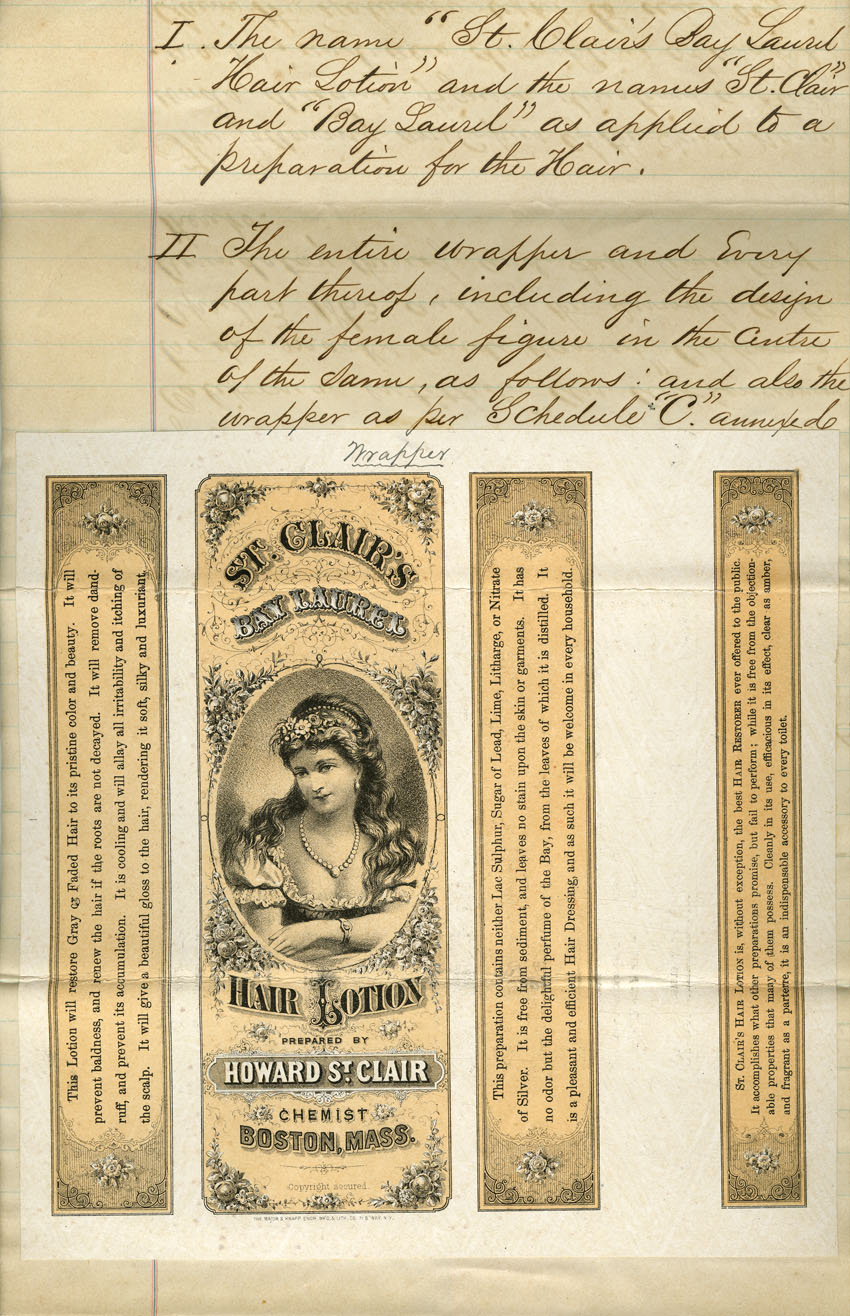 I. The name "St. Clair's Bay Laurel
Hair Lotion" and the names "St. Clair"
and "Bay Laurel" as applied to a
preparation for the Hair.
II The entire wrapper and Every
part thereof, including the design
of the female figure in the Centre
of the same, as follows: and also the
wrapper as per Schedule "C." annexed
Wrapper
This Lotion will restore Gray & Faded Hair to its pristine color and beauty. It will
prevent baldness, and renew the hair if the roots are not decayed. It will remove dand-
ruff, and prevent its accumulation. It is cooling and will allay all irritability and itching of
the scalp. It will give a beautiful gloss to the hair, rendering it soft, silky and luxuriant.
ST. CLAIR'S
BAY LAUREL
HAIR LOTION
PREPARED BY
HOWARD ST. CLAIR
CHEMIST
BOSTON, MASS.
Copyright secured.
THE MAJOR & KNAPP ENGR. MFG. & LITH. CO. 71 B'WAY. N.Y.
This preparation contains neither Lac Sulphur, Sugar of Lead, Lime, Litharge, or Nitrate
of Silver. It is free from sediment, and leaves no stain upon the skin or garments. It has
no odor but the delightful perfume of the Bay, from the leaves of which it is distilled. It
is a pleasant and efficient Hair Dressing, and as such it will be welcome in every household.
ST. CLAIR'S HAIR LOTION is, without exception, the best HAIR RESTORER ever offered to the public.
It accomplishes what other preparations promise, but fail to perform; while it is free from the objection-
able properties that many of them possess. Cleanly in its use, efficacious in its effect, clear as amber,
and fragrant as a parterre, it is an indispensable accessory to every toilet.